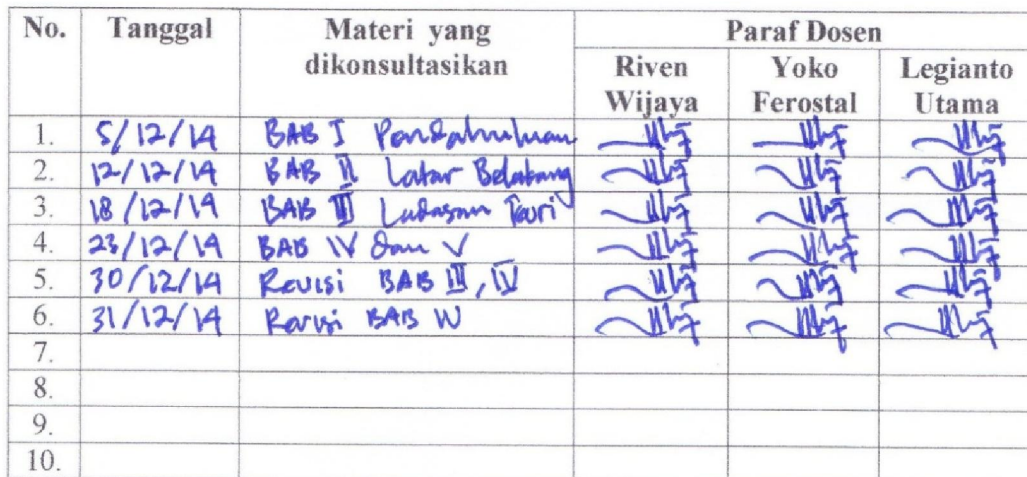 No. Tanggal Materi yang dikonsultasikan Paraf Dosen
Riven Wijaya Yoko Ferostal Legianto Utama
1. 5/12/14 BAB I Pendahuluan
2. 12/12/14 BAB II Latar Belakang
3. 18/12/14 BAB III Ladasan Teori
4. 23/12/14 BAB IV dan V
5. 30/12/14 Revisi BAB III, IV
6. 31/12/14 Revisi BAB
7.
8.
9.
10.